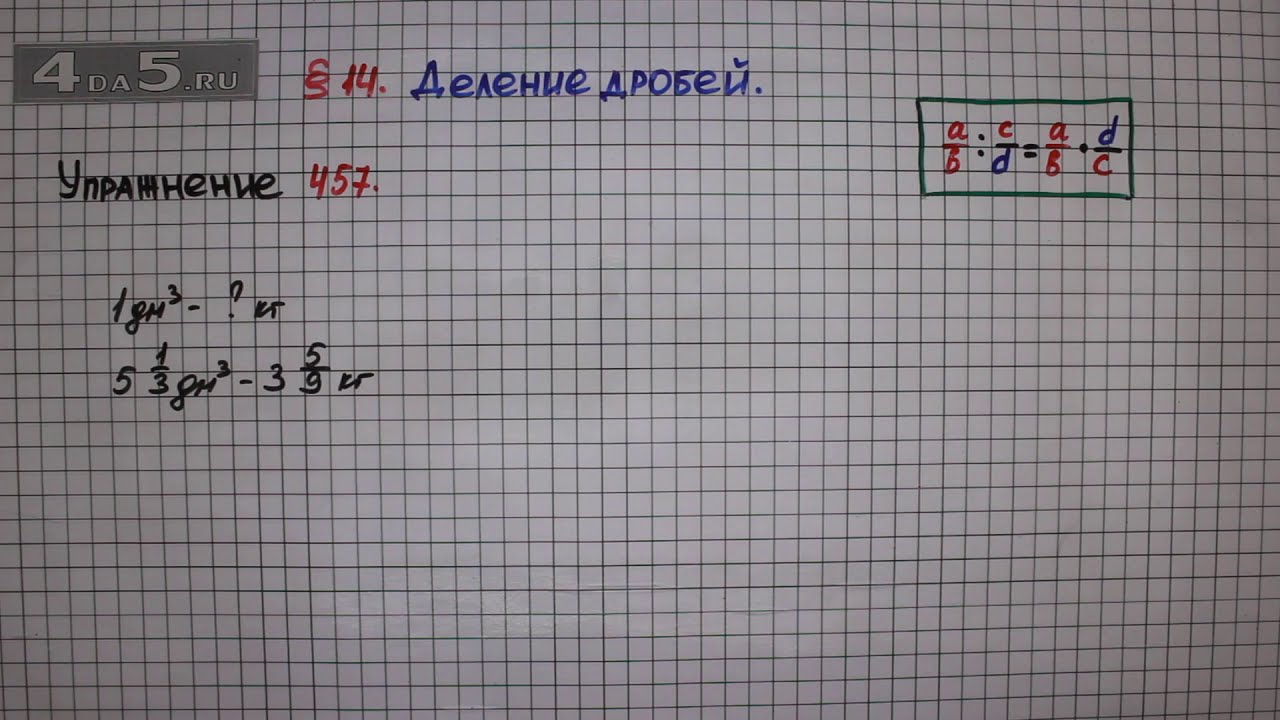 4DA5.RU
§ 14. Деление дробей.
a/b : c/d = a/b · d/c
Упражнение 457.
1 дм³ - ? кг
5 1/3 дм³ - 3 5/9 кг